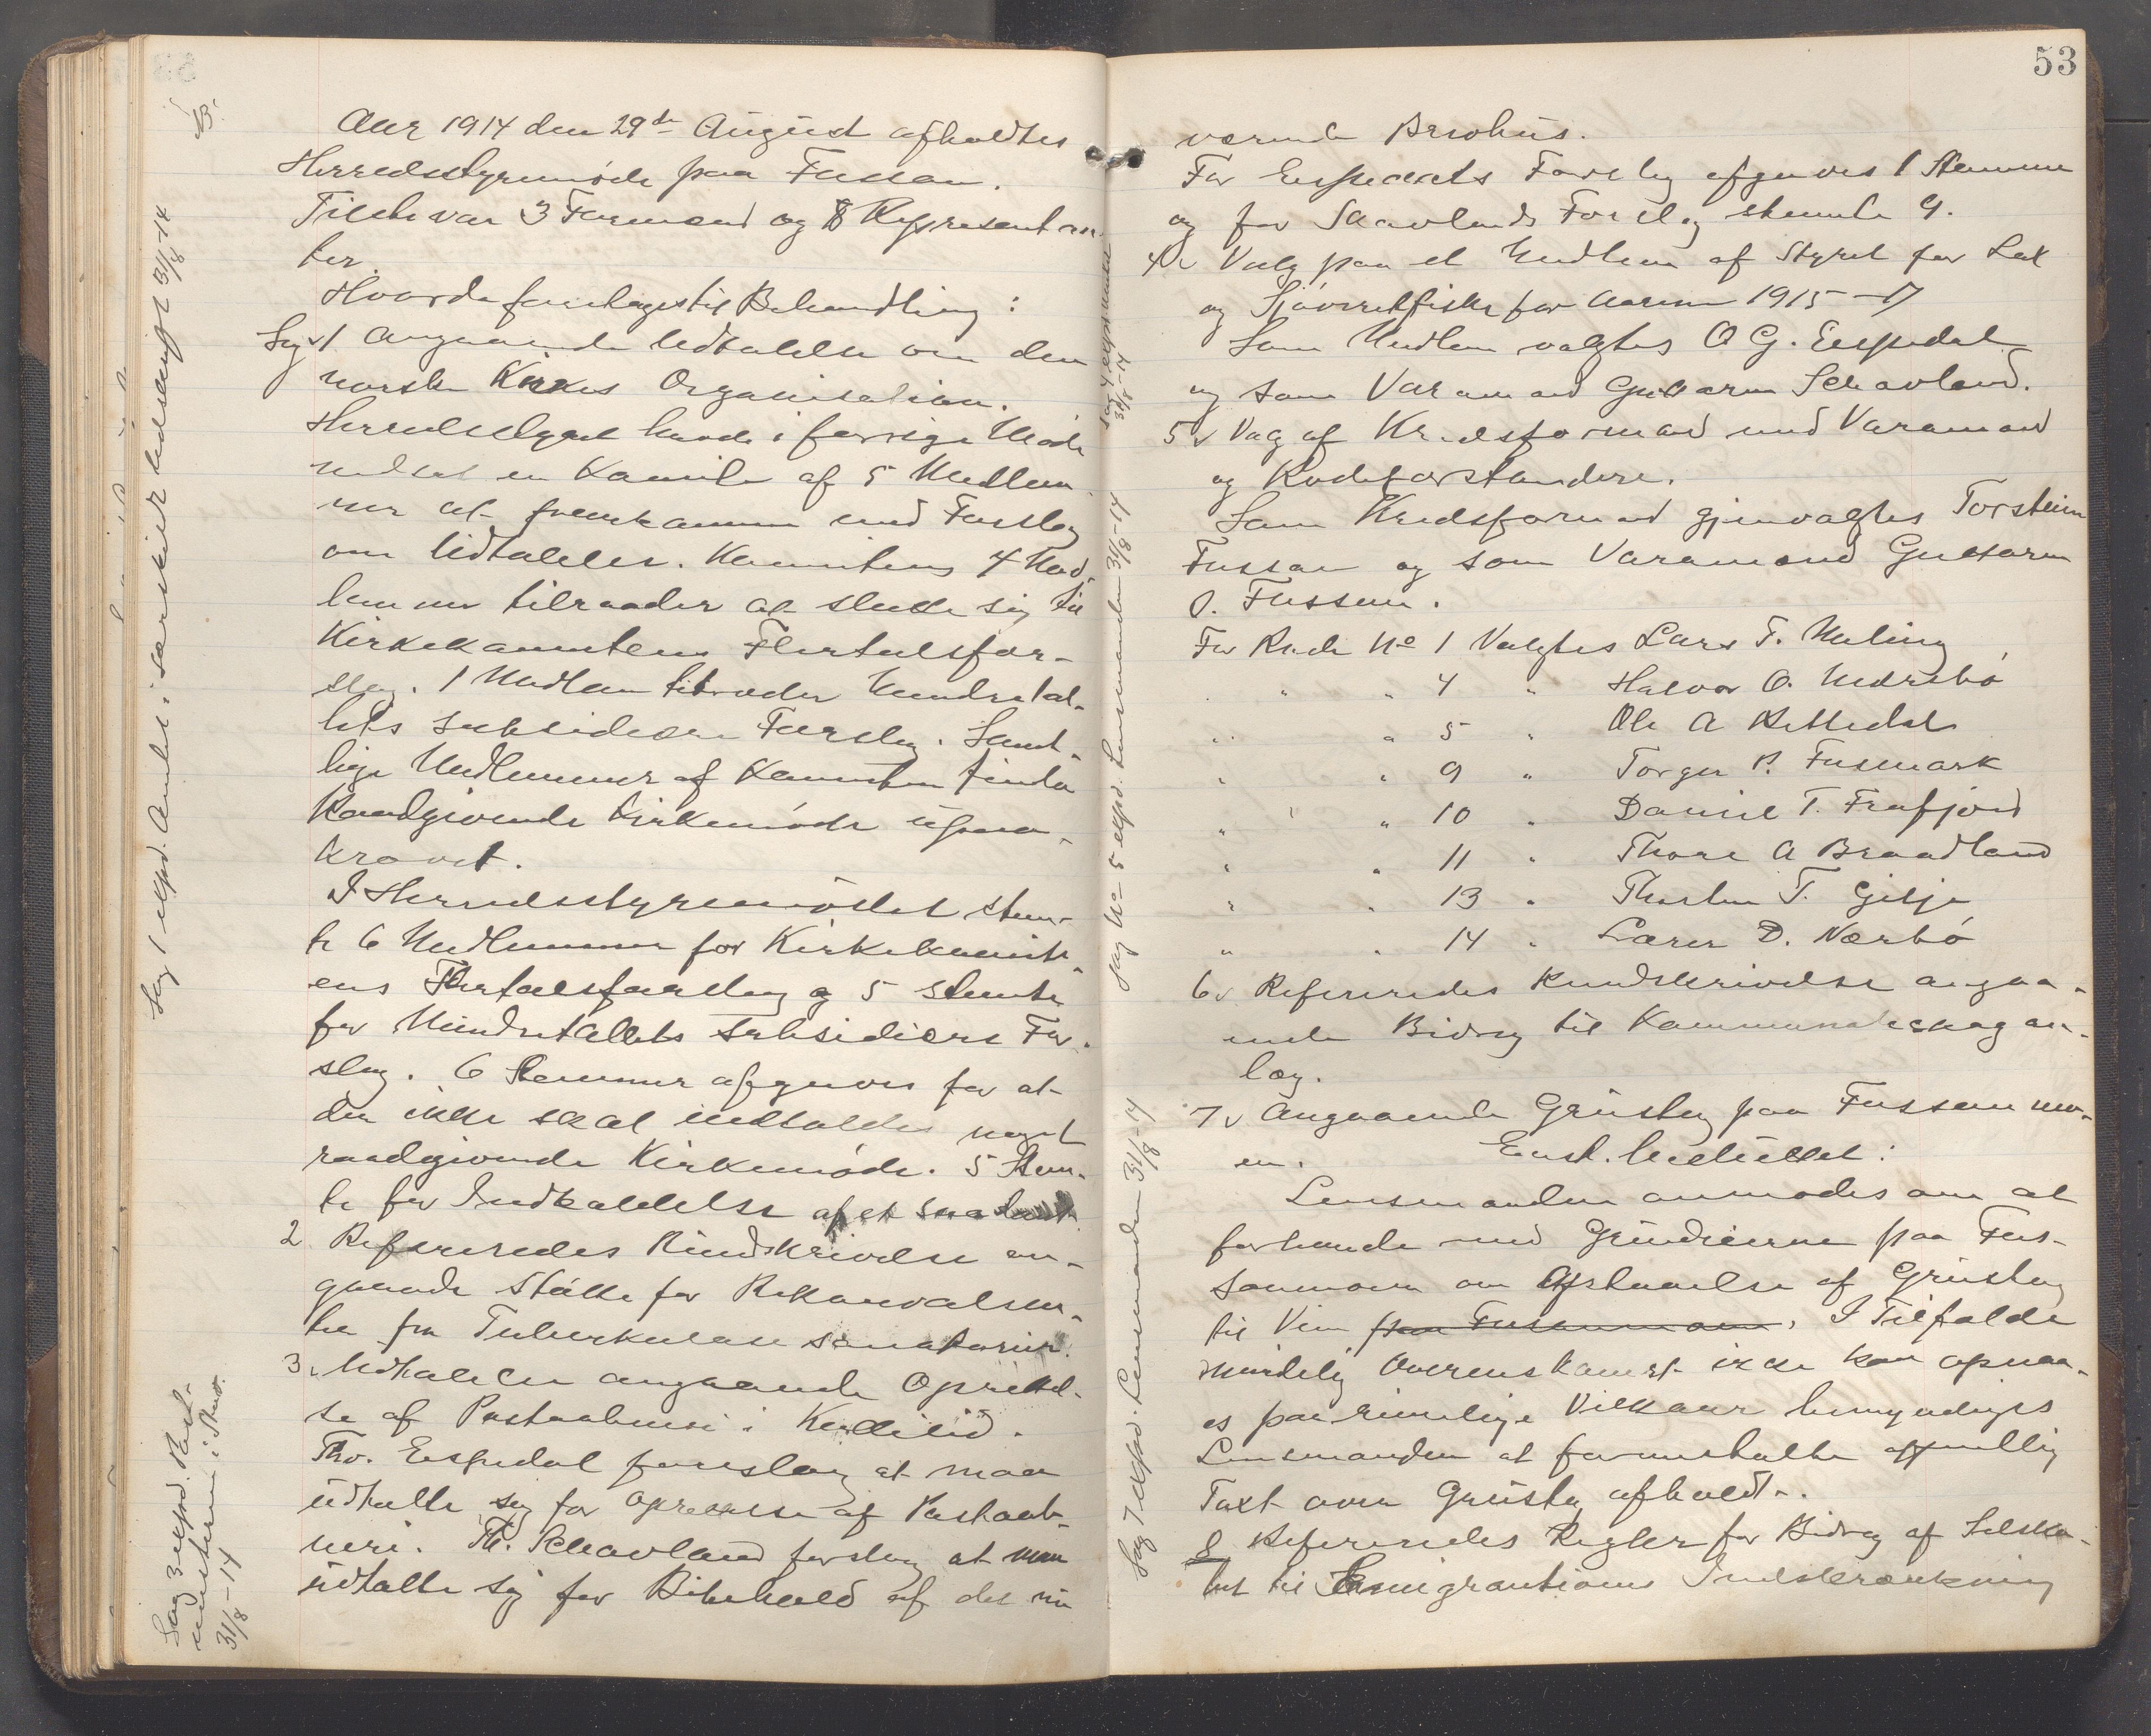 Aar 1914 den 29de August afholdtes
Herredsstyremøde paa Fossan.
Tilstede var 3 Formænd og 8 Repræsentan-
ter.
Hvor da foretoges til Behandling:
Sag 1 Angaaende Udtalelse om den
norske Kirkes Organisation.
Herredsstyret havde i forrige Møde
nedsat en Komite af 5 Medlem-
mer at fremkomme med Forslag
om Udtalelse. Komitens 4 Med-
lemmer tilraader at slutte sig til
Kirkekomiteens Flertalsfor-
slag. 1 Medlem tilraader Mindretal-
lets subsidiære Forslag. Samt-
lige Medlemmer af Komiten finder
Raadgivende Kirkemøde upaa-
krævet.
I Herredsstyremødet stem-
te 6 Medlemmer for Kirkekomite-
ens Flertalsforslag og 5 stemte
for Mindretallets subsidiære For-
slag. 6 Stemmer afgaves for at
der ikke skal indkaldes noget
raadgivende Kirkemøde. 5 Stem-
te for Indkaldelse af et saadant.
2 Refereredes Rundskrivelse an-
gaaende Støtte for Rekonvalsen-
ter fra Tuberkulosesanatorier.
3. Udtalelse angaaende Oprettel-
se af Postaabneri i
Tho. Espedal foreslog at man
udtalte sig for Oprettelse af Postaab-
neri. Th. Schavland forslog at man
udtalte sig for Bibehold af det nu
53
værende Brevhus.
For Espedals Forslag afgaves 1 Stemme
og for Skavlands Forslag stemte 9.
4. Valg paa et Medlem af Styret for Lax
og Sjøørretfiske for Aarene 1915-17
Som Medlem valgtes O G. Espedal
og som Varamand Guttorm Schavland.
5. Valg af Kredsformand med Varamand
og Rodeforstandere.
Som Kredsformand gjenvalgtes Torstein
Fossan og som Varamand Guttorm
O. Fossan.
For Rode No 1 Valgtes Lars T. Meling
" " 4 " Halvor O. Mærebø
" " 5 " Ole A Helledal
" " 9 " Torger P. Fosmark
" " 10 " Daniel T. Frafjord
" " 11 " Thore A Braadland
" " 13 " Thorten T. Gilje
" " 14 " Lærer D. Nærbø
6. Refereredes Rundskrivelse angaa-
ende Bidrag til Kommuneskogan-
læg.
7. Angaaende Grustag paa Fossanmo-
en. Enst. besluttet:
Lensmanden anmodes om at
forhandle med Grundeierne paa Fos-
sanmoen om Afstaaelse af Grustag
til Vei paa Fossanmoen. I Tilfælde
mindelig Overenskomst ikke kan opnaa-
es paa rimelige Vilkaar bemyndiges
Lensmanden at foranstalte offentlig
Taxt over Grustag afholdt.
8 Refereredes Regler for Bidrag af Selska-
bet til Emigrantionens Indskrænkning
Sag 1 exped. Amtet i særskilt Udskrift 31/8-14
Sag 3 exped. Post-
mesteren i Stav.
31/8-14
Sag 4 exped Amtet
31/8-14
Sag No 5 exped. Lensmanden 31/8-14
Sag 7 exped. Lensmanden 31/8-14